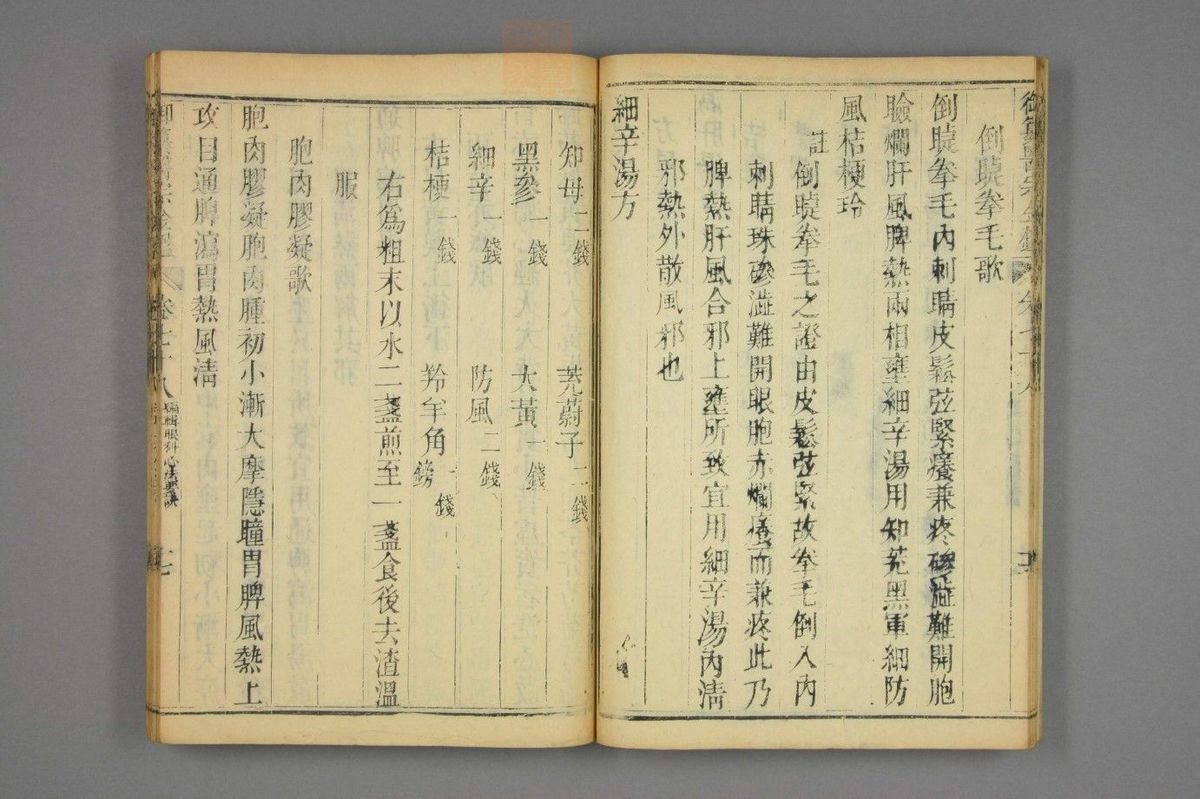 倒睫拳毛歌
倒睫拳毛內刺睛皮鬆弦緊癢兼疼磣澁難開胞
瞼爛肝風脾熱兩相壅細辛湯用知茺黑軍細防
風桔梗羚
註
倒睫拳毛之證由皮鬆弦緊故拳毛倒入內
刺睛珠磣澁難開眼胞赤爛癢而兼疼此乃
脾熱肝風合邪上壅所致宜用細辛湯內淸
邪熱外散風邪也
細辛湯方
知母二錢 茺蔚子二錢
黑參一錢 大黃一錢
細辛一錢 防風二錢
桔梗一錢 羚羊角鎊一錢
右爲粗末以水二盞煎至一盞食後去渣溫
服
胞肉膠凝歌
胞肉膠凝胞肉腫初小漸大摩隱瞳胃脾風熱上
攻目通脾瀉胃熱風淸
卷七十八
編輯眼科心法要訣